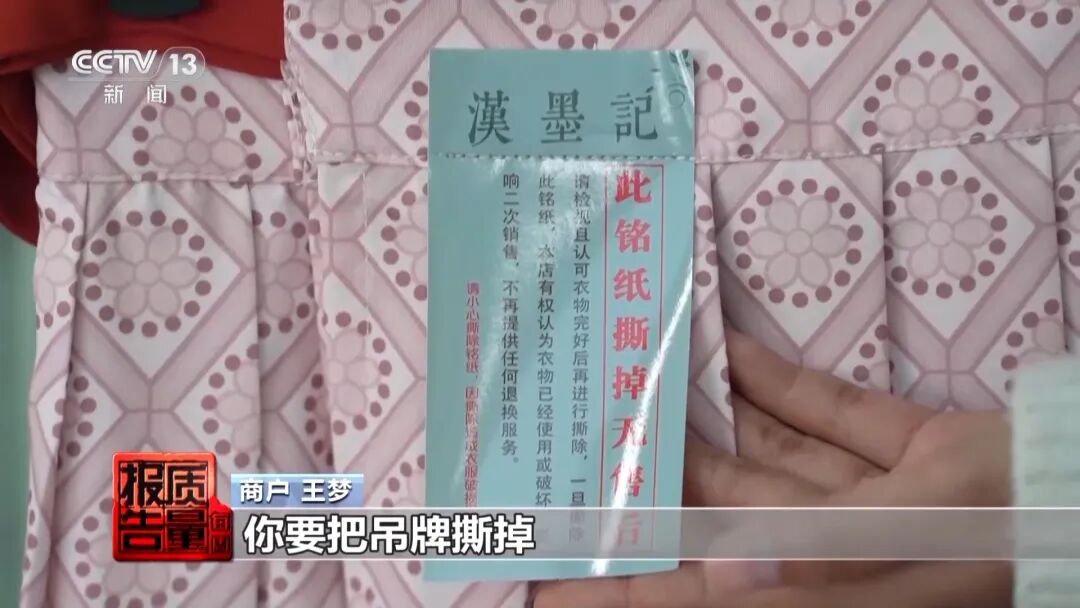 CCTV 13
新闻
漢墨記
此铭纸撕掉无售后
请检视且认可衣物完好后再进行撕除，一旦撕除
此铭纸，本店有权认为衣物已经使用或破坏
响二次销售，不再提供任何退换服务。
请小心撕除铭纸，因撕除造成衣服破损
质量报告
每周
商户 王梦
你要把吊牌撕掉